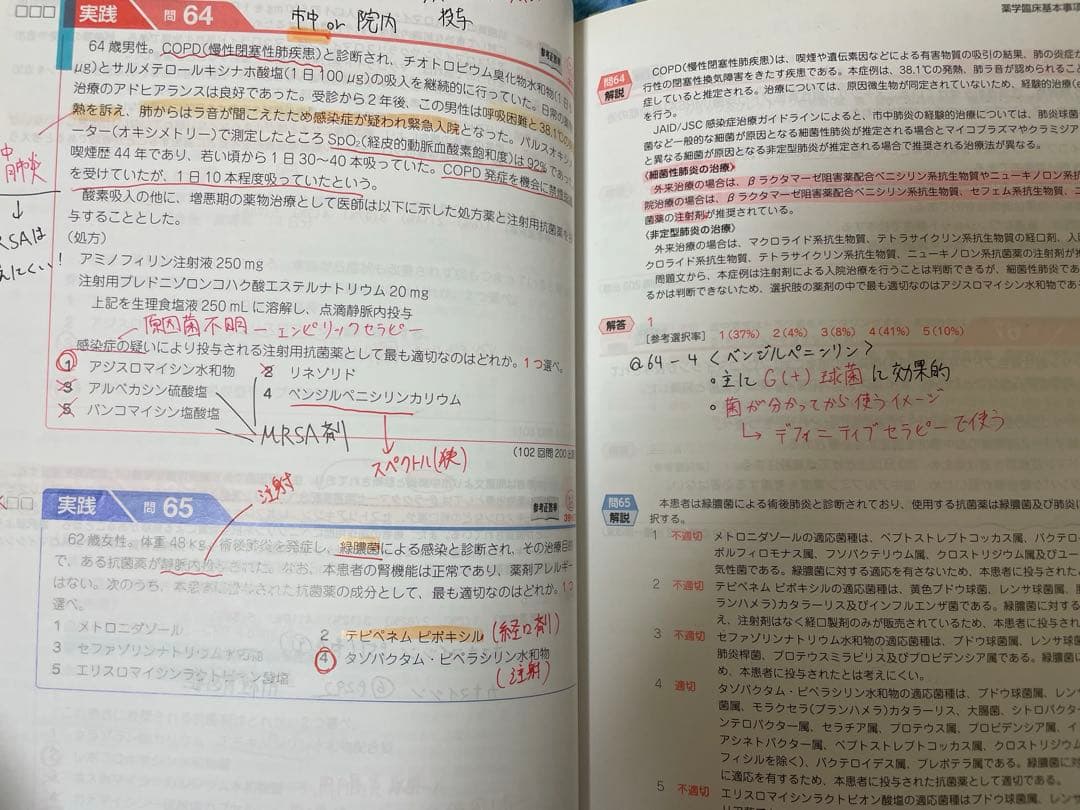 実践 問64 市中 or 院内 投与
参考正答率
64歳男性。COPD(慢性閉塞性肺疾患)と診断され、チオトロピウム臭化物水和物(1日
μg)とサルメテロールキシナホ酸塩(1日100μg)の吸入を継続的に行っていた。日常の薬物
治療のアドヒアランスは良好であった。受診から2年後、この男性は呼吸困難と38.1℃の
熱を訴え、肺からはラ音が聞こえたため感染症が疑われ緊急入院となった。パルスオキシ
ーター(オキシメトリー)で測定したところSpO₂(経皮的動脈血酸素飽和度)は92%であっ
喫煙歴44年であり、若い頃から1日30〜40本吸っていた。COPD発症を機会に禁煙
を受けていたが、1日10本程度吸っていたという。
酸素吸入の他に、増悪期の薬物治療として医師は以下に示した処方薬と注射用抗菌薬を
与することとした。
(処方)
アミノフィリン注射液250mg
注射用プレドニゾロンコハク酸エステルナトリウム20mg
上記を生理食塩液250mLに溶解し、点滴静脈内投与
中
肺炎
↓
MRSAは
にくい!
原因菌不明ーエンピリックセラピー
感染症の疑いにより投与される注射用抗菌薬として最も適切なのはどれか。1つ選べ。
1 アジスロマイシン水和物 2 リネゾリド
3 アルベカシン硫酸塩 4 ベンジルペニシリンカリウム
5 バンコマイシン塩酸塩
MRSA剤
スペクトル(狭)
(102回問200
注射
実践 問65
参考正答率
62歳女性。体重48kg。術後肺炎を発症し、緑膿菌による感染と診断され、その治療目
で、ある抗菌薬が静脈内投与された。なお、本患者の腎機能は正常であり、薬剤アレルギー
はない。次のうち、本患者に投与された抗菌薬の成分として、最も適切なのはどれか。1つ
選べ。
1 メトロニダゾール 2 テビペネム ピボキシル (経口剤)
3 セファゾリンナトリウム水和物 4 タゾバクタム・ピペラシリン水和物
5 エリスロマイシンラクトビオン酸塩 (注射)
薬学臨床基本事項
問64
解説
COPD(慢性閉塞性肺疾患)は、喫煙や遺伝素因などによる有害物質の吸引の結果、肺の炎症が
行性の閉塞性換気障害をきたす疾患である。本症例は、38.1℃の発熱、肺ラ音が認められること
症していると推定される。治療については、原因微生物が同定されていないため、経験的治療(
を行う。
JAID/JSC感染症治療ガイドラインによると、市中肺炎の経験的治療については、肺炎球菌
菌など一般的な細菌が原因となる細菌性肺炎が推定される場合とマイコプラズマやクラミジア
と異なる細菌が原因となる非定型肺炎が推定される場合で推奨される治療法が異なる。
〈細菌性肺炎の治療〉
外来治療の場合は、βラクタマーゼ阻害薬配合ペニシリン系抗生物質やニューキノロン系
院治療の場合は、βラクタマーゼ阻害薬配合ペニシリン系抗生物質、セフェム系抗生物質、ニ
菌薬の注射剤が推奨されている。
〈非定型肺炎の治療〉
外来治療の場合は、マクロライド系抗生物質、テトラサイクリン系抗生物質の経口剤、入
クロライド系抗生物質、テトラサイクリン系抗生物質、ニューキノロン系抗菌薬の注射剤が推
問題文から、本症例は注射剤による入院治療を行うことは判断できるが、細菌性肺炎であ
るかは判断できないため、選択肢の薬剤の中で最も適切なのはアジスロマイシン水和物であ
解答 1
[参考選択率] 1(37%) 2(4%) 3(8%) 4(41%) 5(10%)
@64-4 <ベンジルペニシリン>
・主にG(+)球菌に効果的
・菌が分かってから使うイメージ
↳ デフィニティブセラピーで使う
問65
解説
本患者は緑膿菌による術後肺炎と診断されており、使用する抗菌薬は緑膿菌及び肺炎に
択する。
1 不適切 メトロニダゾールの適応菌種は、ペプトストレプトコッカス属、バクテ
ポルフィロモナス属、フソバクテリウム属、クロストリジウム属及びユー
気性菌である。緑膿菌に対する適応を有さないため、本患者に投与された
2 不適切 テビペネム ピボキシルの適応菌種は、黄色ブドウ球菌、レンサ球菌属、
ランハメラ)カタラーリス及びインフルエンザ菌である。緑膿菌に対する
え、注射剤はなく経口製剤のみが販売されているため、本患者に投与され
3 不適切 セファゾリンナトリウム水和物の適応菌種は、ブドウ球菌属、レンサ球
肺炎桿菌、プロテウスミラビリス及びプロビデンシア属である。緑膿菌に
め、本患者に投与されたとは考えにくい。
4 適切 タゾバクタム・ピペラシリン水和物の適応菌種は、ブドウ球菌属、レン
菌属、モラクセラ(ブランハメラ)カタラーリス、大腸菌、シトロバクター
ンテロバクター属、セラチア属、プロテウス属、プロビデンシア属、イ
アシネトバクター属、ペプトストレプトコッカス属、クロストリジウム
フィシルを除く)、バクテロイデス属、プレボテラ属である。緑膿菌に対
に適応を有するため、本患者に投与された抗菌薬として適切である。
5 不適切 エリスロマイシンラクトビオン酸塩の適応菌種はブドウ球菌属、レンサ